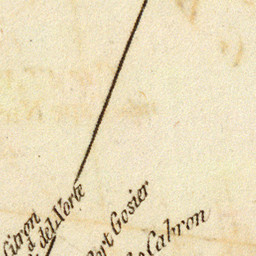 Citron
del Norte
Port Gosier
Cabron